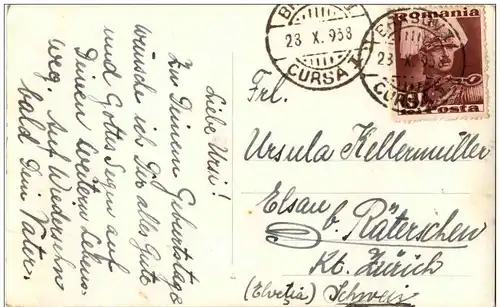 Liebe Ursi!
Zu Deinem Geburtstage
wünsche ich Dir alles Gute
und Gottes Segen auf
Deinem weitern Lebens
weg. Auf Wiedersehn
bald Dein Vater.
23 X. 938
CURSA
23 X. 93
CURSA
Romania
Posta
Frl.
Ursula Kellermüller
Elsau
b. Räterschen
Kt. Zürich
(Elveţia) Schweiz